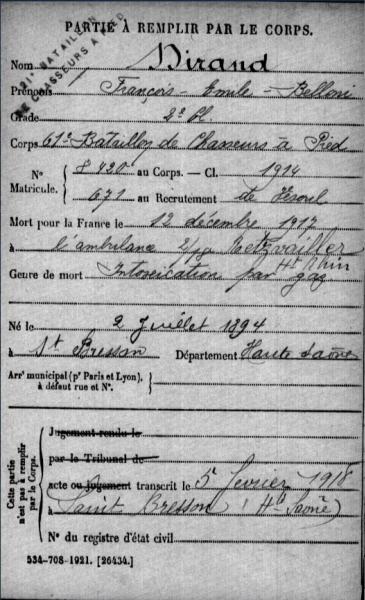 PARTIE À REMPLIR PAR LE CORPS.
21e BATAILLON
DE CHASSEURS À PIED
Nom Dirand
Prénoms François - Emile - Belloni
Grade 2e cl.
Corps 61e Bataillon de Chasseurs à Pied
No 8420 au Corps. — Cl. 1914
Matricule. 671 au Recrutement de Vesoul
Mort pour la France le 12 décembre 1917
à l'ambulance 2/70
Ht Rhin
Genre de mort Intoxication par gaz
Né le 2 Juillet 1894
à St Bresson Département Haute Saône
Arrt municipal (pr Paris et Lyon),
à défaut rue et No.
Cette partie
n'est pas à remplir
par le Corps.
Jugement rendu le
par le Tribunal de
acte ou jugement transcrit le 5 février 1918
à Saint Bresson (Hte Saône)
No du registre d'état civil
534-708-1921. [26434.]